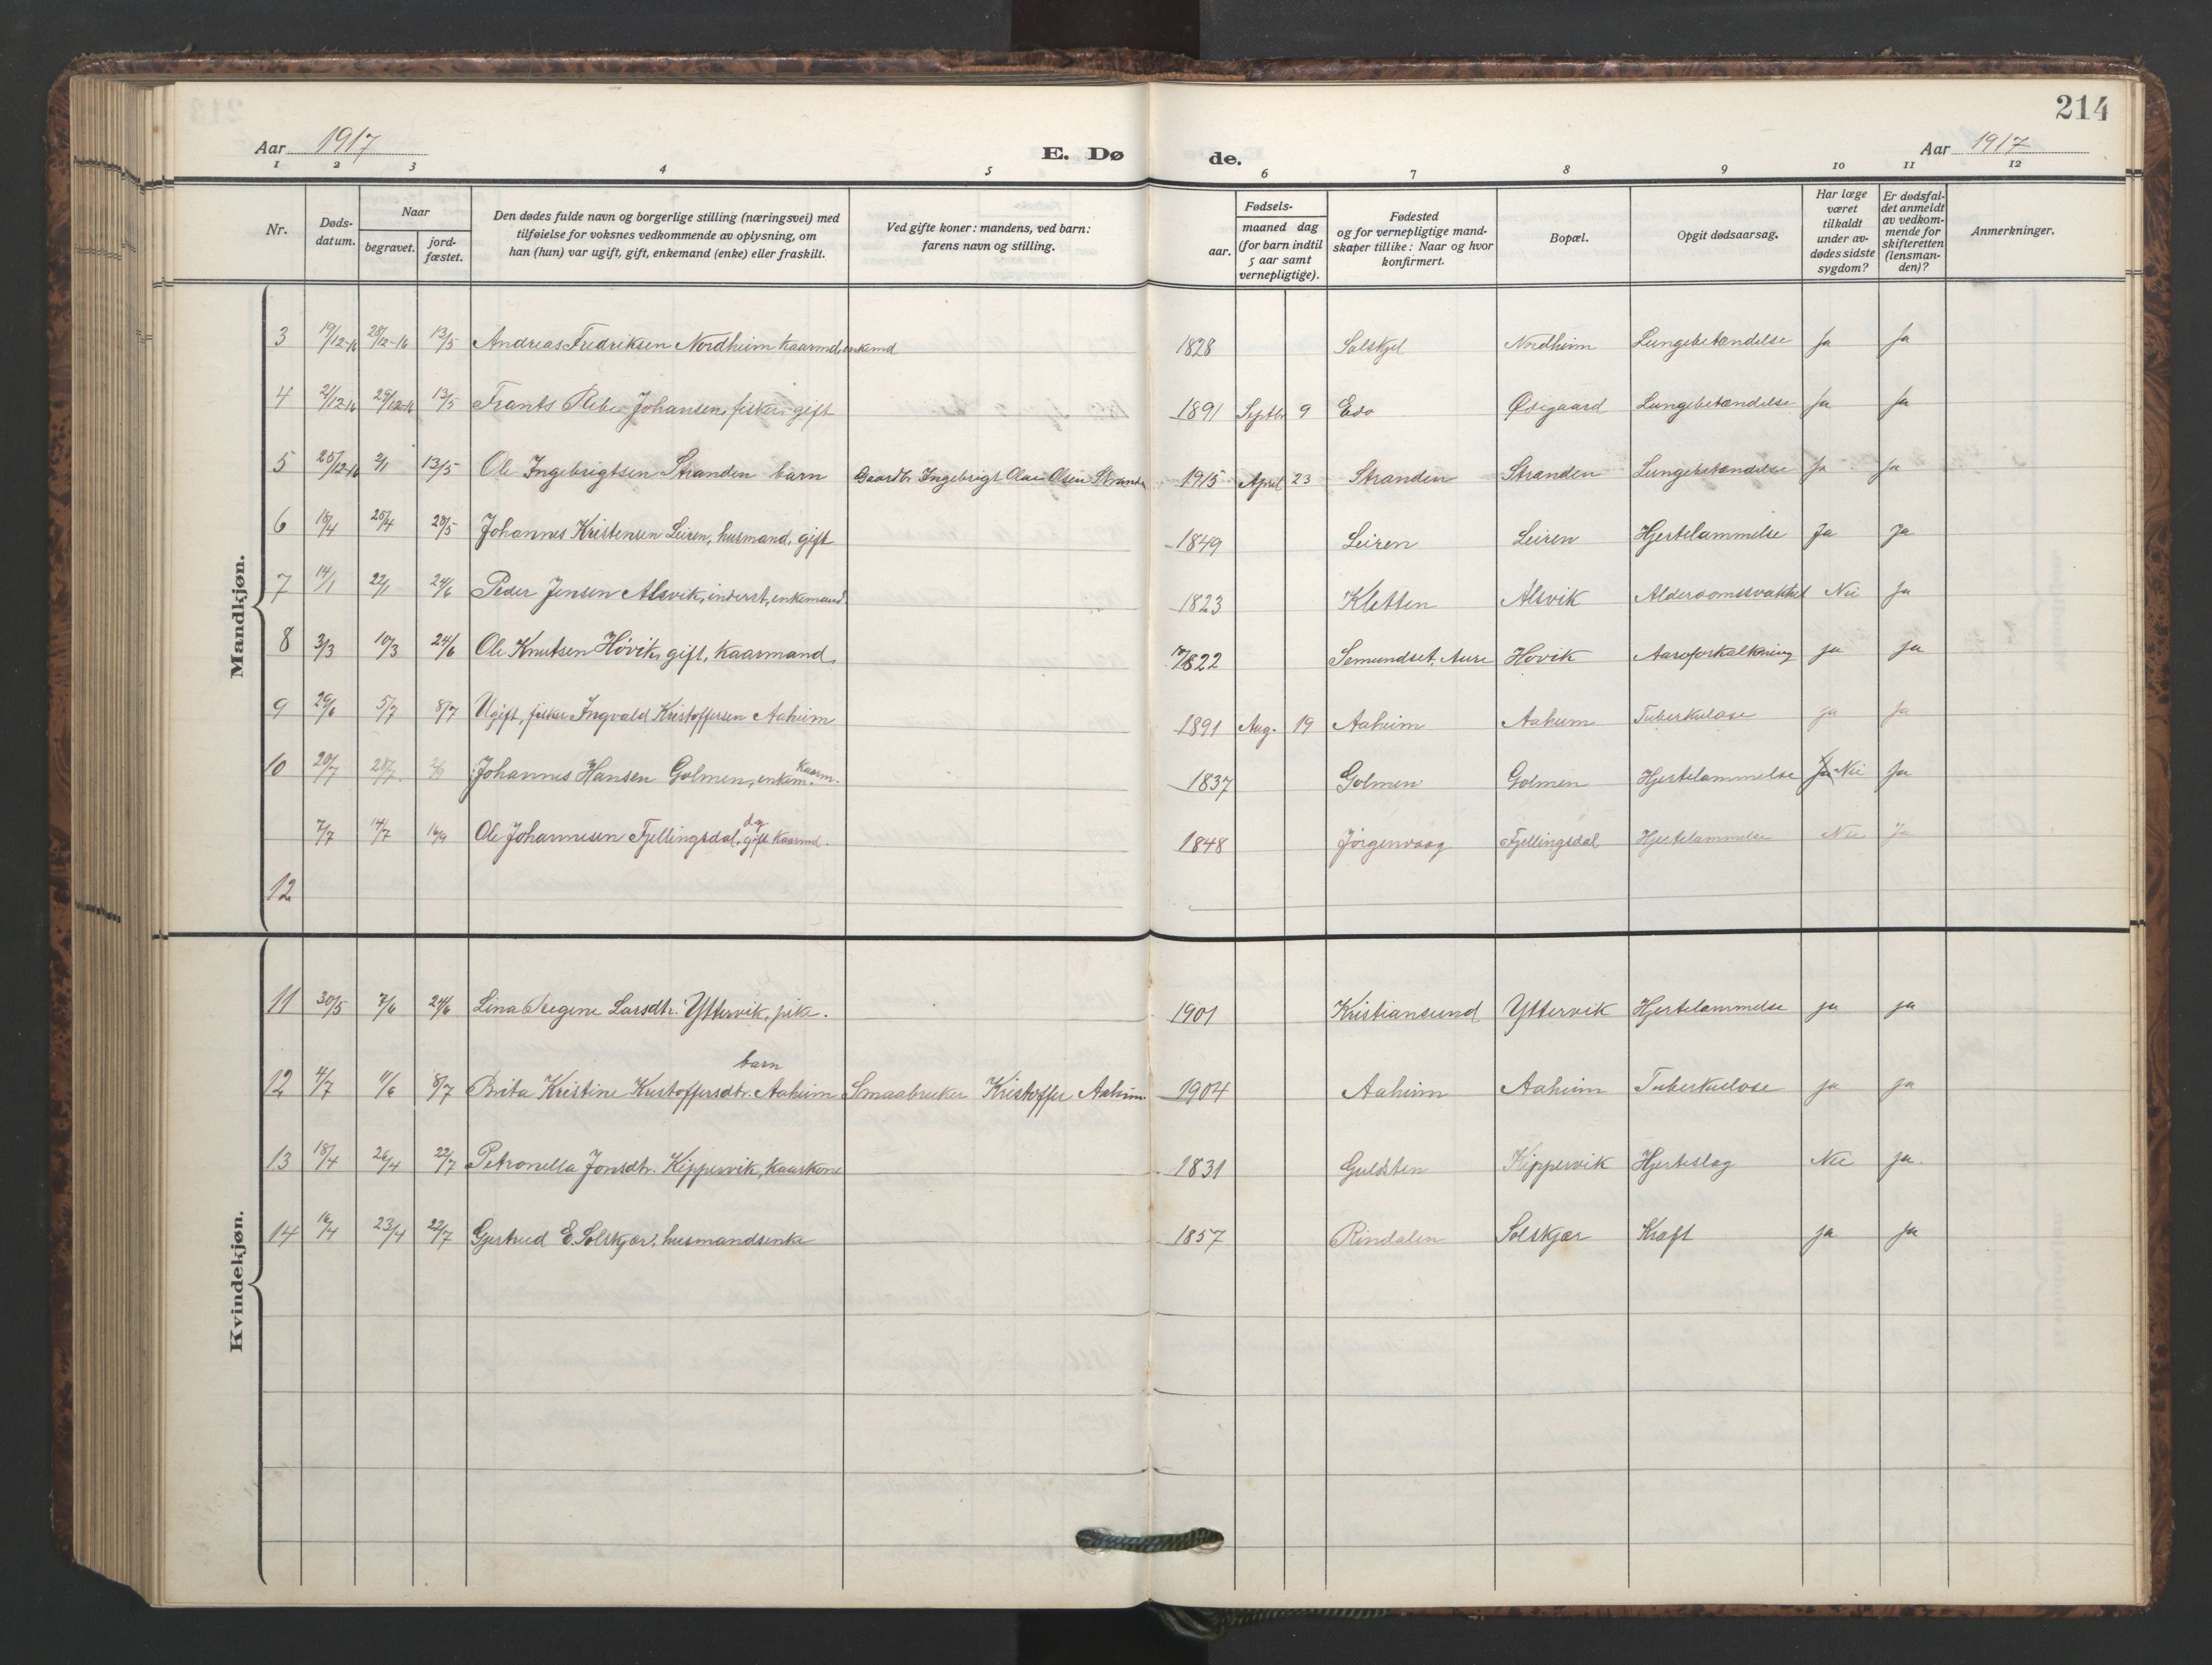 214
Aar 1917
E. Dø
de.
Aar 1917
1 2 3 4 5 6 7 8 9 10 11 12
Nr.
Døds-
datum.
Naar
begravet.
jord-
fæstet.
Den dødes fulde navn og borgerlige stilling (næringsvei) med
tilføielse for voksnes vedkommende av oplysning, om
han (hun) var ugift, gift, enkemand (enke) eller fraskilt.
Ved gifte koner: mandens, ved barn:
farens navn og stilling.
Fødsels-
aar.
maaned dag
(for barn indtil
5 aar samt
vernepligtige).
Fødested
og for vernepligtige mand-
skaper tillike: Naar og hvor
konfirmert.
Bopæl.
Opgit dødsaarsag.
Har læge
været
tilkaldt
under av-
dødes sidste
sygdom?
Er dødsfal-
det anmeldt
av vedkom-
mende for
skifteretten
(lensman-
den)?
Anmerkninger.
Mandkjøn.
3 19/12-16 28/12-16 13/5 Andreas Fredriksen Nordheim kaarmd. enkemd 1828 Solskjel Nordheim Lungebetændelse Ja Ja
4 21/12-16 29/12-16 13/5 Frants Johansen, fisker, gift 1891 Septbr 9 Edø Ødegaard Lungebetændelse Ja Ja
5 25/12-16 2/1 13/5 Ole Ingebrigtsen Stranden barn Gaardbr. Ingebrigt Olaus Olsen Stranden 1915 April 23 Stranden Stranden Lungebetændelse Ja Ja
6 18/4 25/4 28/5 Johannes Kristensen Leiren, husmand, gift 1849 Leiren Leiren Hjertelammelse Ja Ja
7 14/1 22/1 24/6 Peder Jensen Alsvik, inderst, enkemand 1823 Kletten Alsvik Alderdomssvakhet Nei Ja
8 3/3 10/3 24/6 Ole Knutsen Høvik, gift, kaarmand. 1822 Semundset, Aure Høvik Aareforkalkning ja ja
9 29/6 5/7 8/7 Ugift, fisker Ingvald Kristoffersen Aaheim 1891 Aug. 19 Aaheim Aaheim Tuberkulose ja ja
10 20/7 28/7 Johannes Hansen Golmen, enkem. Kaarm. 1837 Golmen Golmen Hjertelammelse Ja Nei Ja
7/7 14/7 16/9 Ole Johannesen Fjellingsdal, gift kaarmd. 1848 Jørgenvaag Fjellingsdal Hjertelammelse Nei Ja
12
Kvindekjøn.
11 30/5 7/6 24/6 Lina Regine Larsdtr. Yttervik, pike. 1901 Kristiansund Yttervik Hjertelammelse ja ja
barn
12 4/7 11/6 8/7 Brita Kristine Kristoffersdtr. Aaheim Smaabruker Kristoffer Aaheim 1904 Aaheim Aaheim Tuberkulose ja ja
13 18/4 26/4 22/7 Petronella Jonsdtr. Kippervik, kaarkone 1831 Guldsten Kippervik Hjerteslag Nei ja.
14 16/4 23/4 22/7 Gjertrud E. Solskjær, husmandsenke 1857 Rindalen Solskjær Kræft ja ja